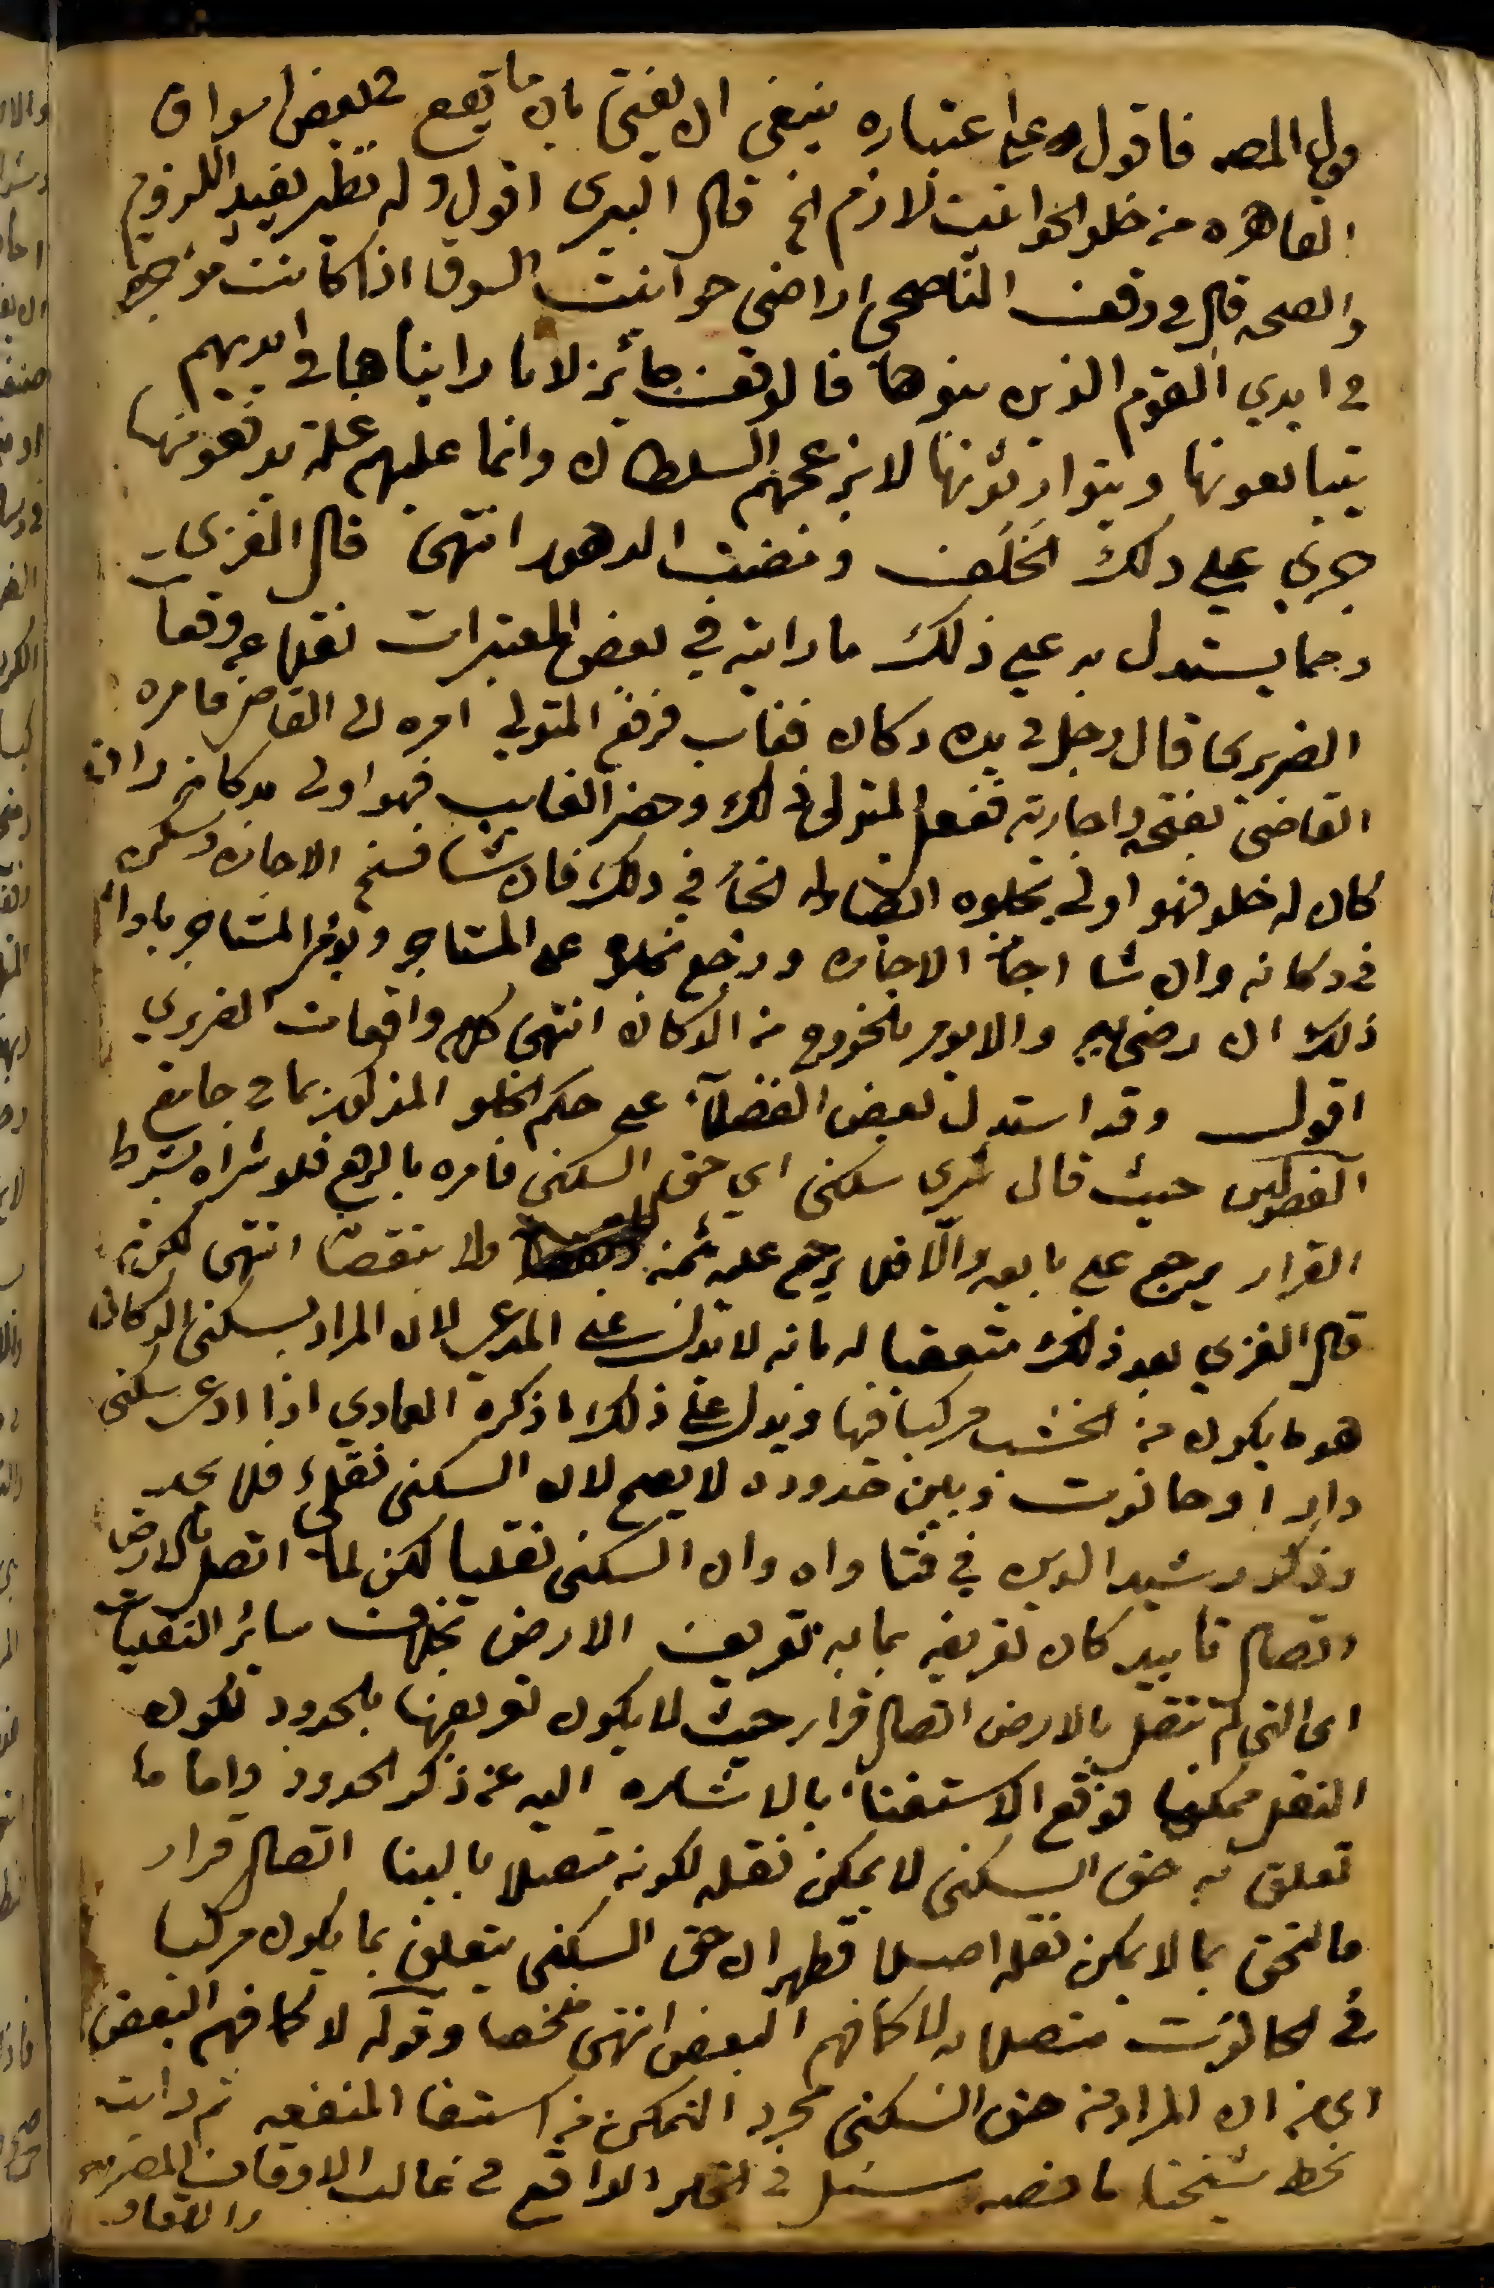 قول المصـ فاقول وعلى اعتباره ينبغي ان يفتى بان ما يقع في بعض اسواق
القاهره من خلو الحوانيت لازم الخ قال البيري اقول وله نظير يفيد اللزوم
والصحه قال في وقف الناصحي اراضي حوانيت السوق اذا كانت مؤجره
في ايدي القوم الذين بنوها فالوقف جائز لانا رايناها في ايديهم
يتبايعونها ويتوارثونها لا يزعجهم السلطان وانما عليهم غلة يدفعونها
جرى علي ذلك الخلف ومضت الدهور انتهى قال الغزي
ومما يستدل به علي ذلك ما رايته في بعض المعتبرات نقلا عن وقعات
الضريري قال رجل في يده دكان فغاب فرفع المتولي امره الى القاضي فامره
القاضي بفتحه واجارته ففعل المتولي ذلك وحضر الغايب فهو اولى بدكانه وان
كان له خلو فهو اولى بخلوه ايضا وله الخيار في ذلك فان شا فسخ الاجاره وسكن
في دكانه وان شا اجاز الاجازه ورجع بخلوه على المستاجر ويؤمر المستاجر باداء
ذلك ان رضي به والا يومر بالخروج من الدكان انتهى كلام واقعات الضريري
اقول وقد استدل بعض الفضلاء على حكم الخلو المذكور بما في جامع
الفصولين حيث قال شري سكنى اي حق السكنى فامره بالرفع فلو شراه بشرط
القرار يرجع على بايعه والا فلا يرجع عليه بثمنه ولا بنقصان انتهى لكن
قال الغزي بعد ذلك متعقبا له بانه لا يدل على المدعى لان المراد بسكنى الدكان
هو ما يكون من الخشب مركبا فيها ويدل على ذلك ما ذكره العمادي اذا ادعى سكنى
دار او حانوت وبين حدوده لا يصح لان السكنى نقلي فلا يحد
وذكر رشيد الدين في فتاواه وان السكنى نقليا لكن لما اتصل بالارض
اتصال تابيد كان تعريفه بما به تعريف الارض بخلاف سائر النقليات
اي التي لم تتصل بالارض اتصال قرار حيث لا يكون تعريفها بالحدود لكون
النقل ممكنا فوقع الاستغناء بالاشاره اليه عن ذكر الحدود واما ما
تعلق به حق السكنى لا يمكن نقله لكونه متصلا بالبنا اتصال قرار
فالتحق بما لا يمكن نقله اصلا فظهر ان حق السكنى يتعلق بما يكون مركبا
في الحانوت متصلا به لا كما فهم البعض انتهى ملخصا وقوله لا كما فهم البعض
اي من ان المراد من حق السكنى مجرد التمكن من استيفا المنفعه ثم رايت
بخط شيخنا ما نصه سئل في الخلو الواقع في غالب الاوقاف المصريه